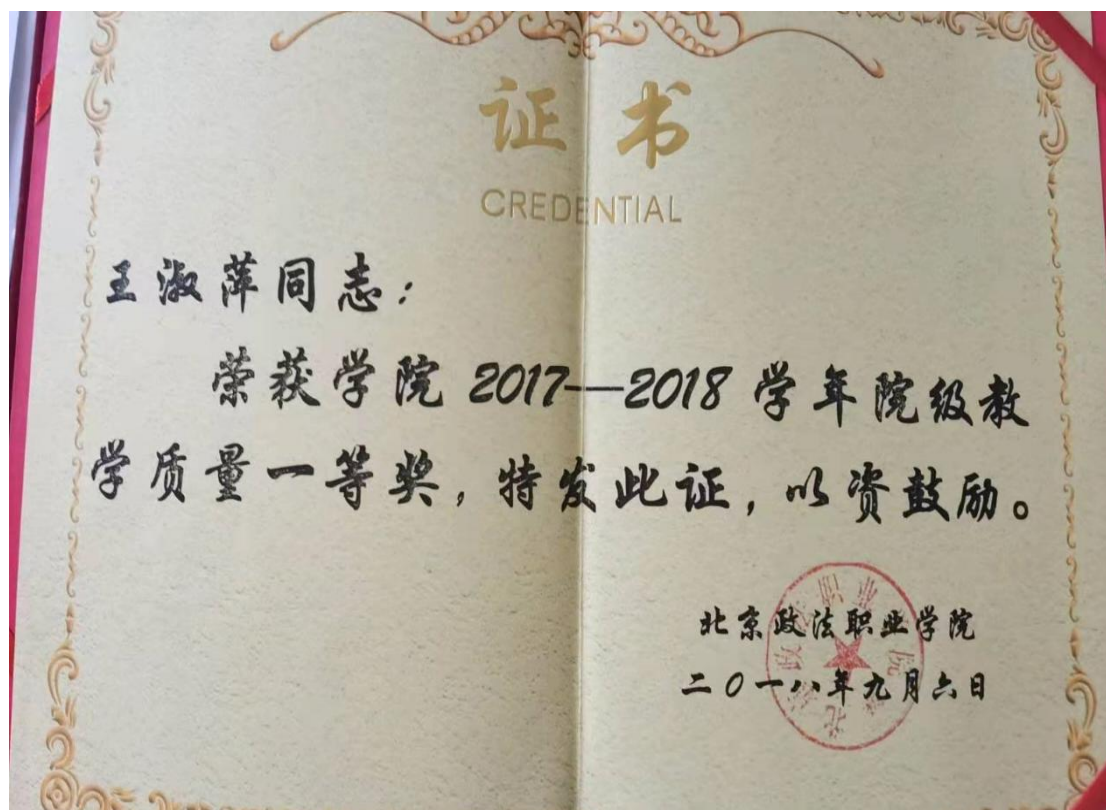 证书
CREDENTIAL
王淑萍同志：
荣获学院 2017—2018 学年院级教
学质量一等奖，特发此证，以资鼓励。
北京政法职业学院
二0一八年九月六日